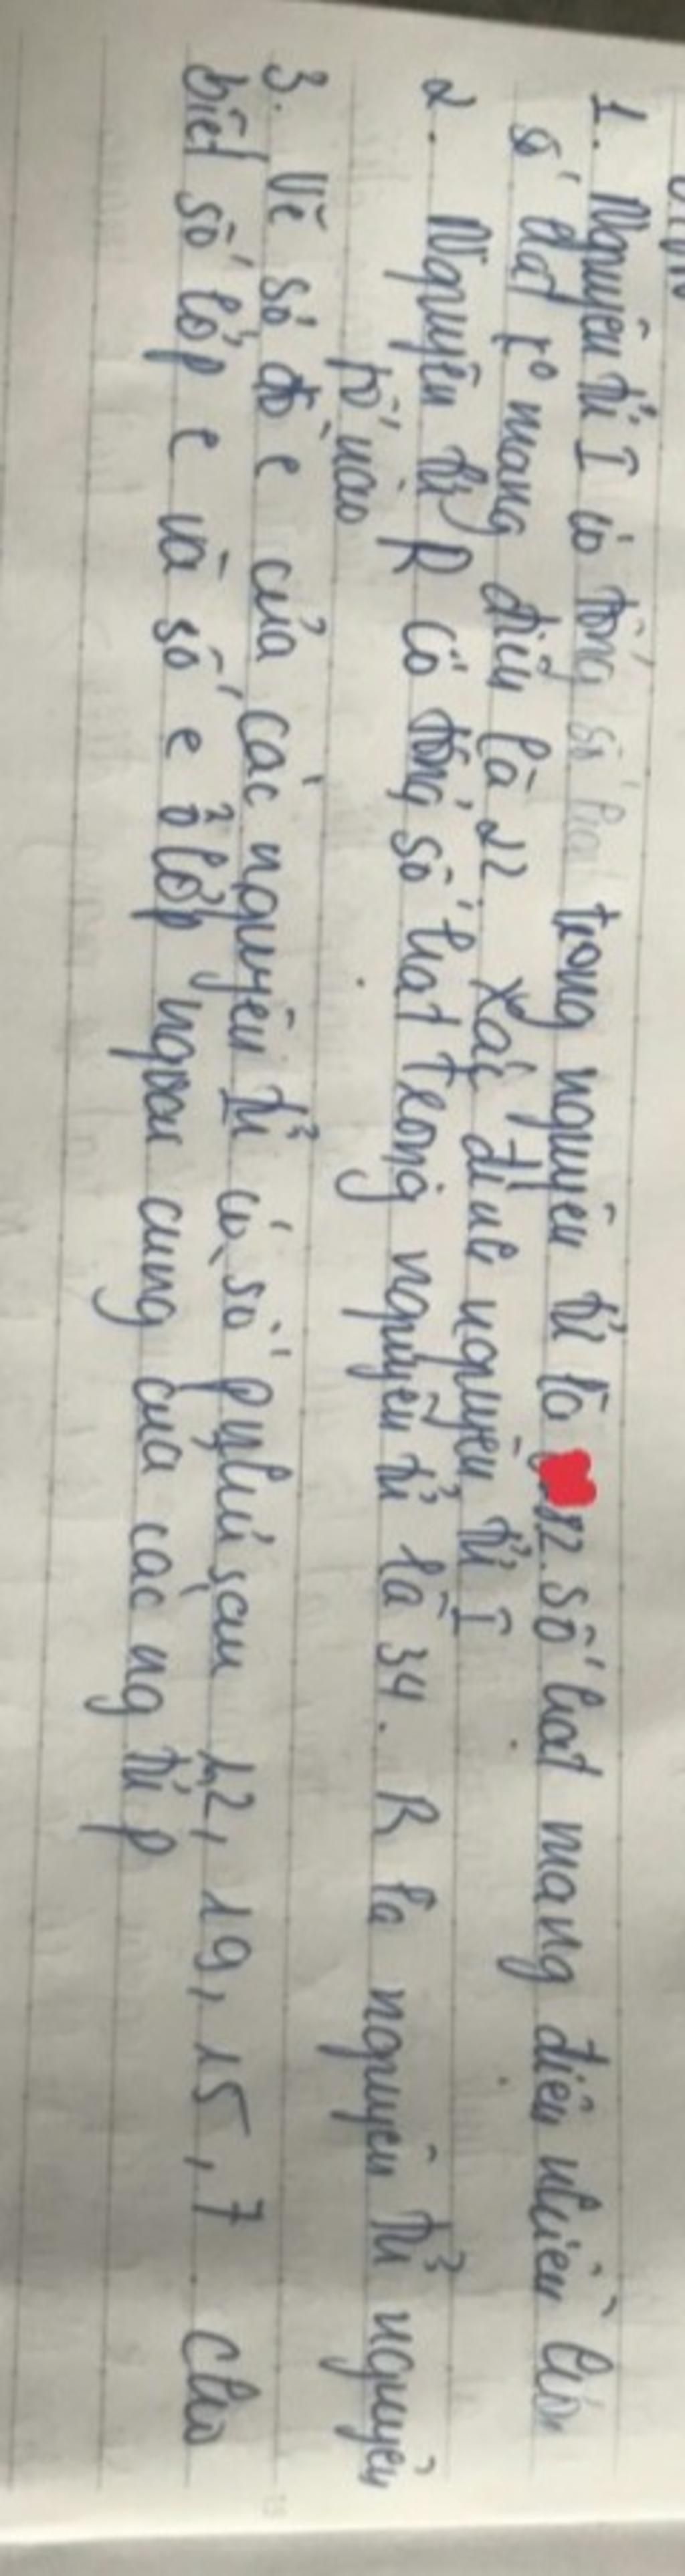 1. Nguyên tử I có tổng số hạt trong nguyên tử là 82. Số hạt mang điện nhiều hơn
số hạt k° mang điện là 22. Xác định nguyên tử I
2. Nguyên tử R có tổng số hạt trong nguyên tử là 34. R là nguyên tử nguyên
tố nào
3. Vẽ sơ đồ e của các nguyên tử có số p như sau 12, 19, 15, 7. Cho
biết số lớp e và số e ở lớp ngoài cùng của các ng tử p